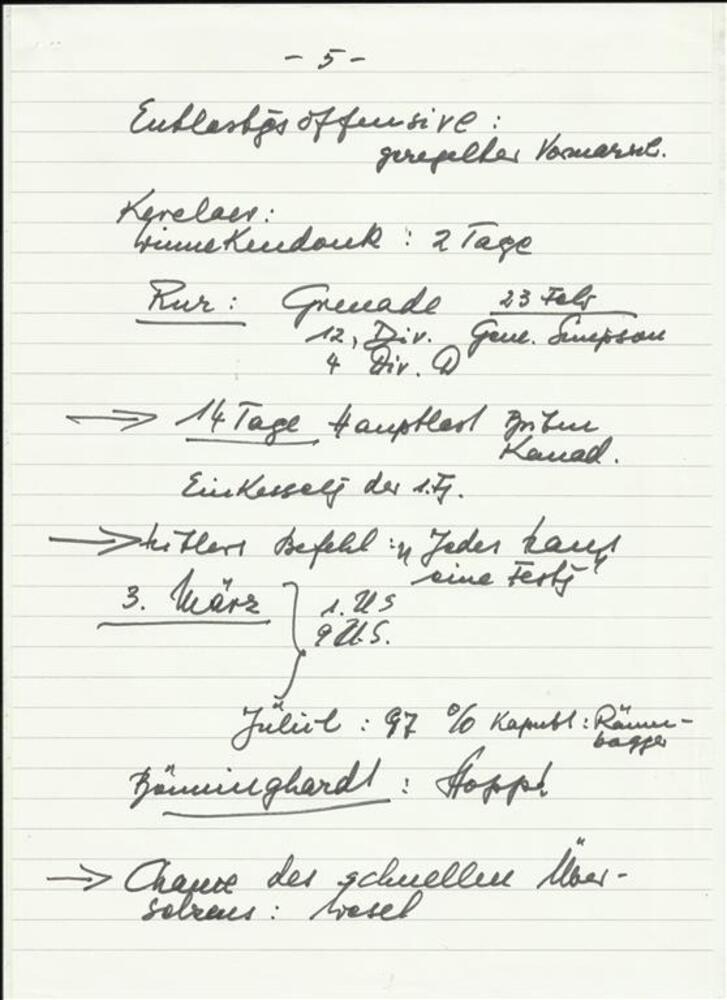 - 5 -
Entlastgsoffensive :
geregelter Vormarsch.
Kevelaer :
Winnekendonk : 2 Tage
Rur : Grenade 23 Febr
12, Div. Gene. Simpson
4 Div.
→ 14 Tage Hauptlast Briten
Kanad.
Einkesselg der 1. Fj.
→ Hitlers Befehl : „Jedes Haus
eine Festg"
3. März } 1. US
9 U.S.
Jülich : 97 % kaputt : Räum-
bagger
Bönninghardt : Stopp!
→ Chance des schnellen Über-
setzens : Wesel